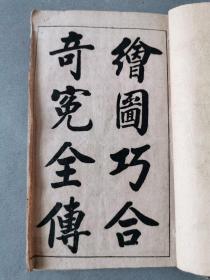 繪圖巧合
奇冤全傳